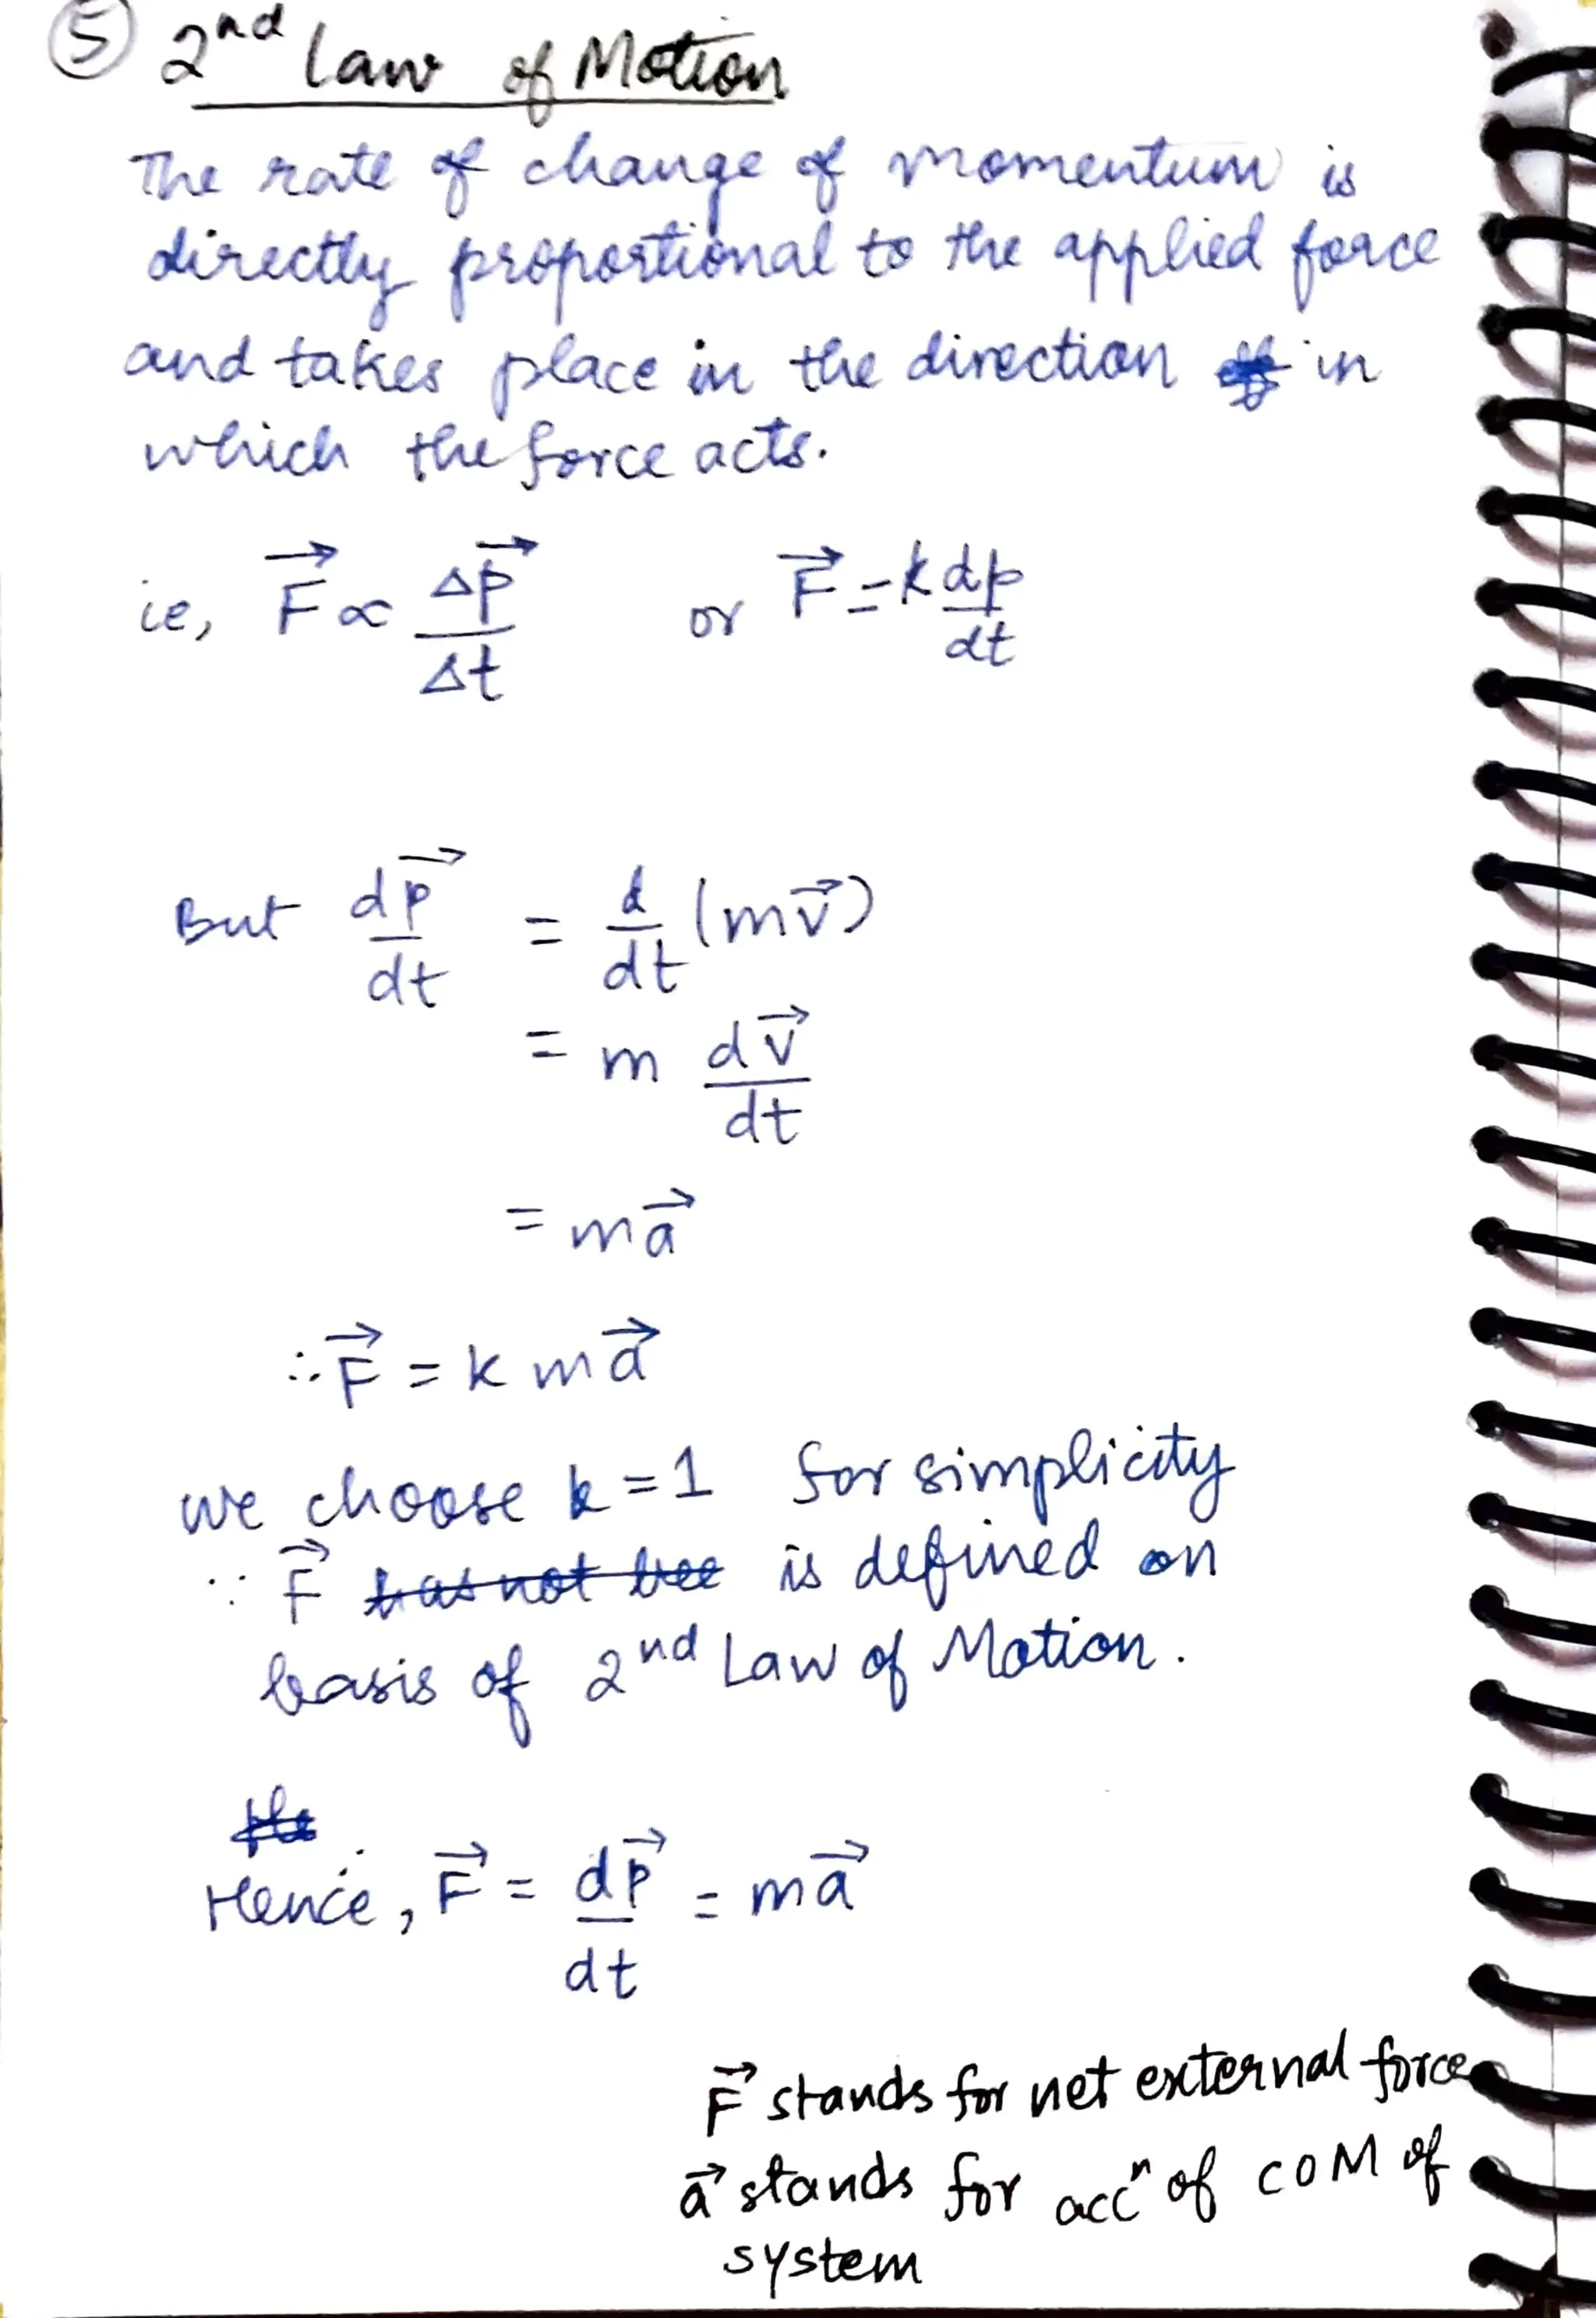 ⑤ 2nd Law of Motion
The rate of change of momentum is
directly proportional to the applied force
and takes place in the direction in
which the force acts.
ie, F⃗ ∝ Δp⃗/Δt or F⃗ = k dp/dt
But dp⃗/dt = d/dt (mv⃗)
= m dv⃗/dt
= ma⃗
∴ F⃗ = k ma⃗
we choose k = 1 for simplicity
∵ F⃗ has not bee is defined on
basis of 2nd Law of Motion.
the
Hence, F⃗ = dp⃗/dt = ma⃗
F⃗ stands for net external force
a⃗ stands for accⁿ of COM of
system